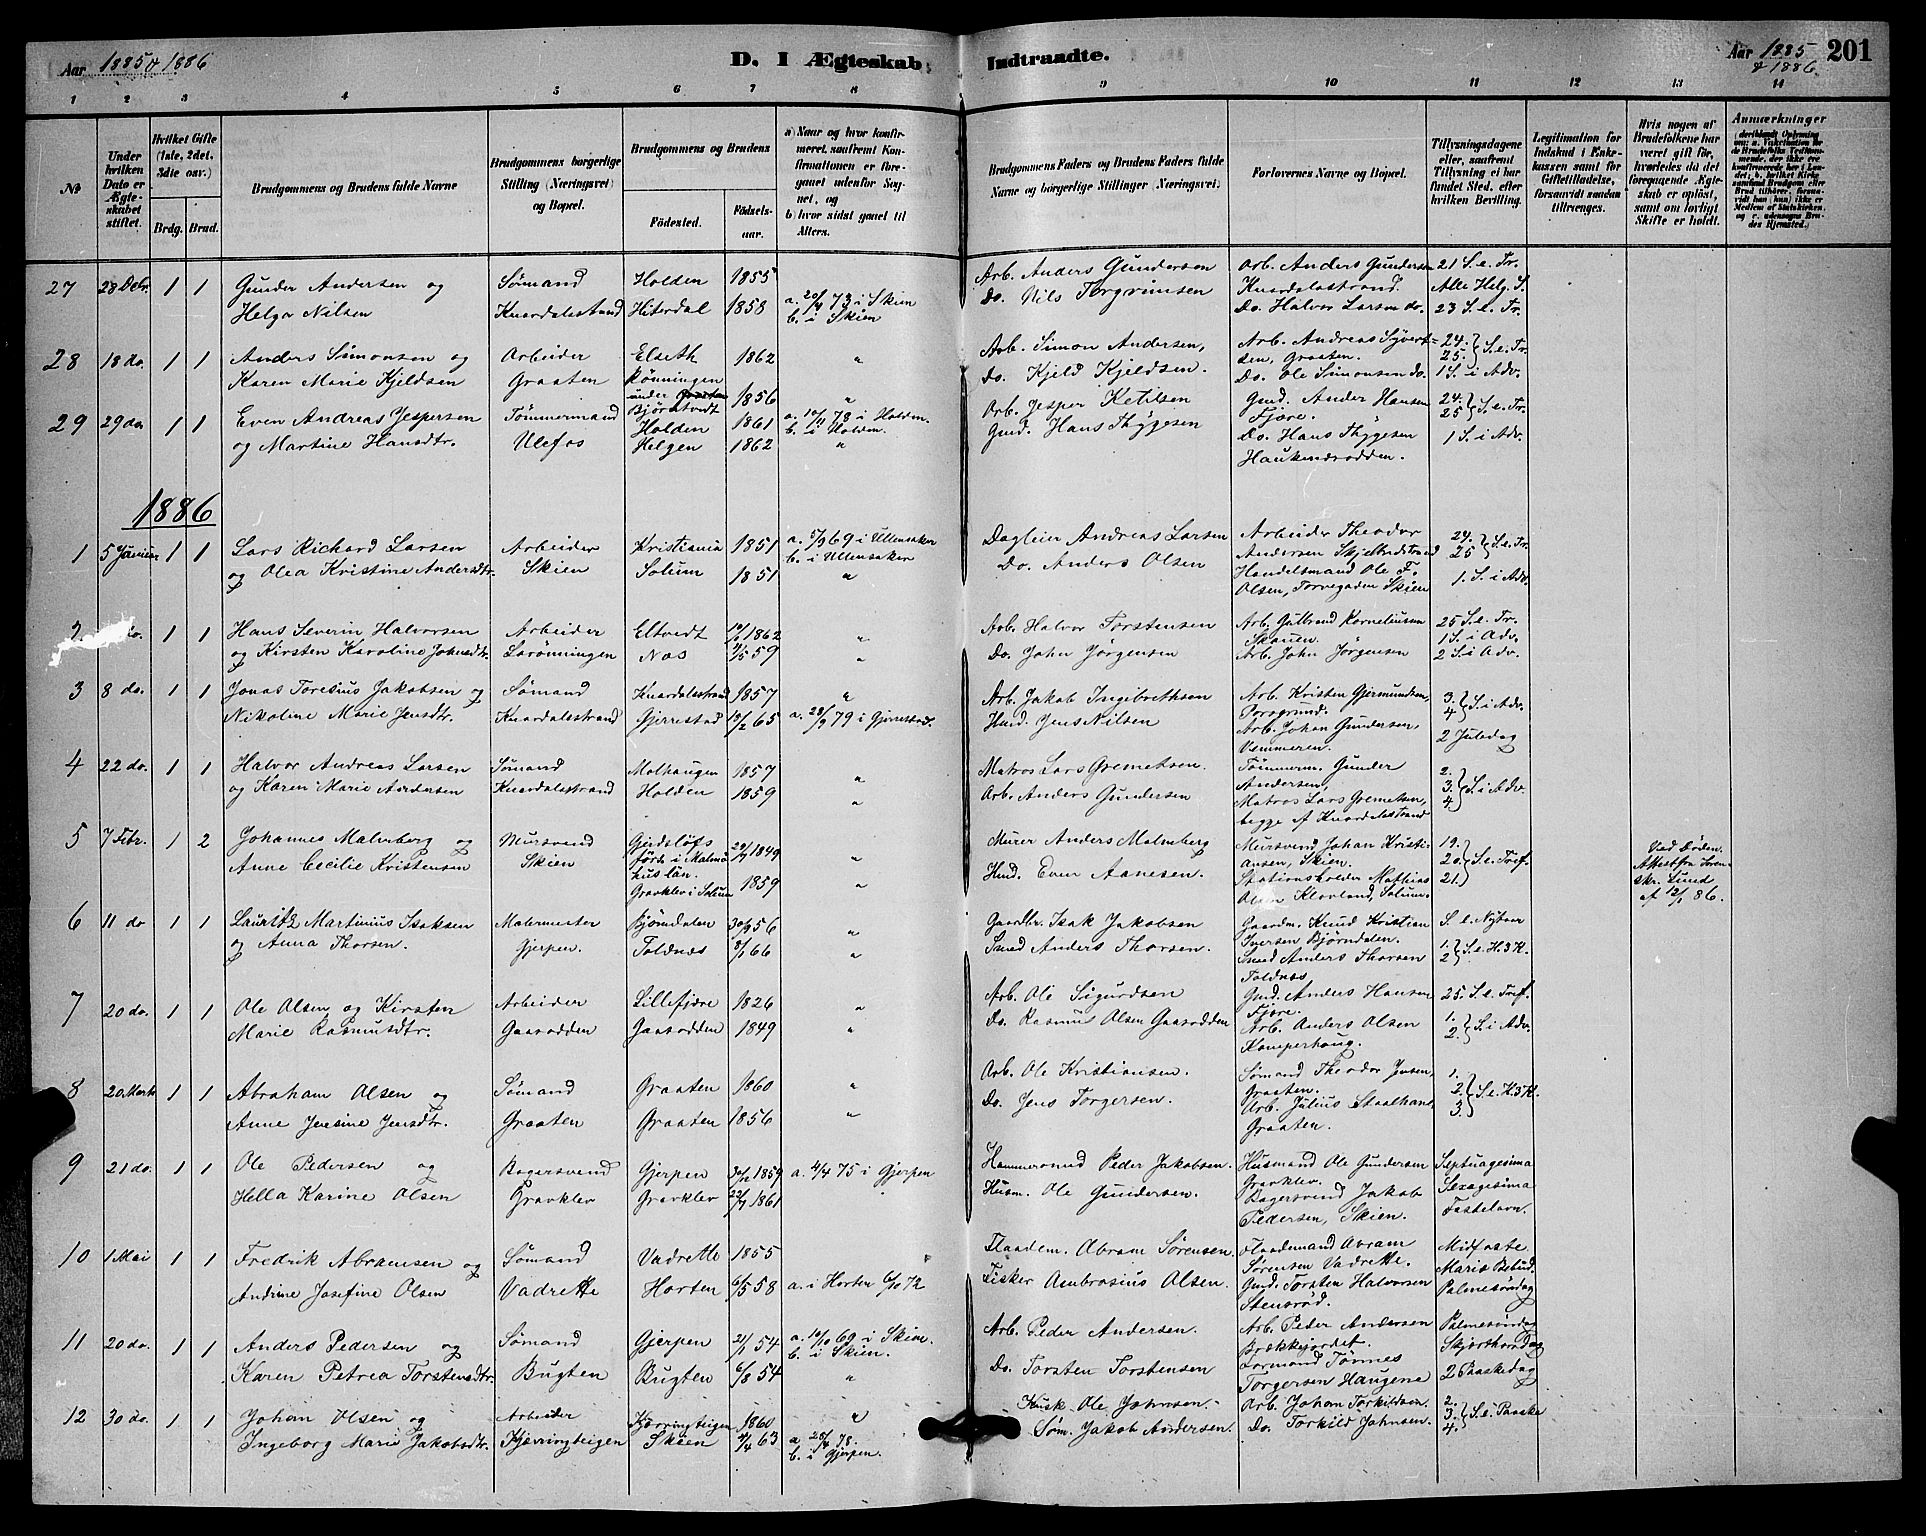 Aar 1885 & 1886
D. I Ægteskab
Indtraadte.
Aar 1885 & 1886.
201
1 2 3 4 5 6 7 8 9 10 11 12 13 14
No
Under hvilken Dato er Ægteskabet stiftet.
Hvilket Gifte (1ste, 2det, 3die osv.)
Brdg. Brud.
Brudgommens og Brudens fulde Navne
Brudgommens borgerlige Stilling (Næringsvei) og Bopæl.
Brudgommens og Brudens
Fødested.
Fødselsaar.
a) Naar og hvor konfirmeret, saafremt Konfirmationen er foregaaet udenfor Sognet, og
b) hvor sidst gaaet til Alters.
Brudgommens Faders og Brudens Faders fulde Navne og borgerlige Stillinger (Næringsvei)
Forlovernes Navne og Bopæl.
Tillysningsdagene eller, saafremt Tillysning ei har fundet Sted, efter hvilken Bevilling.
Legitimation for Indskud i Enkekassen samt for Giftetilladelse, forsaavidt saadan tiltrænges.
Hvis nogen af Brudefolkene har været gift før, hvorledes da det foregaaende Ægteskab er opløst, samt om lovligt Skifte er holdt.
Anmærkninger
27 28 Debr. 1 1 Gunder Andersen og Sømand Holden 1855 Arb. Anders Gundersen Arb. Anders Gundersen 21 S. e. Tr.
Helga Nilsen Knardalsstrand Hiterdal 1858 a. 20/4 73 i Skien b. i Skien Do. Nils Torgrimsen Knardalsstrand. Alle Helg. S.
Do. Halvor Larsen do. 23 S. e. Tr.
28 18 do. 1 1 Anders Simonsen og Arbeider Elseth 1862 " Arb. Simon Andersen, Arb. Andreas Syvertsen, Graaten. 24. 25. S. e. Tr.
Karen Marie Kjeldsen Graaten Rønningen under Bjørntvedt 1856 " Do. Kjeld Kjeldsen. Do. Ole Simonsen do. 1 S. i Adv.
29 29 do. 1 1 Even Andreas Jespersen Tømmermand Holden 1861 a. 10/11 78 i Holden. b. i Holden. Arb. Jesper Ketilsen Gmd. Anders Hansen Fjære. 24. 25 S. e. Tr.
og Martine Hansdtr. Ulefos Helgen 1862 " Gmd. Hans Thygesen Do. Hans Thygesen 1 S. i Adv.
1886
1 5 Januar 1 1 Lars Richard Larsen Arbeider Kristiania 1851 a. 5/9 69 i Ullensaker b. i Ullensaker Dagleier Andreas Larsen Arbeider Theodor Andersen 24. 25 S. e. Tr.
og Olea Kristine Andersdtr. Skien Solum 1851 " Do. Anders Olsen Handelsmand Ole F. Olsen, Torvegaden Skien 1. S. i Adv.
2. do. 1 1 Hans Severin Halvorsen Arbeider Eltvedt 1862 " Arb. Halvor Torstensen Arb. Gulbrand Korneliusen 25 S. e. Tr.
og Kirsten Karoline Johnsdtr. Larønningen Næs 59 " Do. John Jørgensen Arb. John Jørgensen 1 S. i Adv. 2 S. i Adv.
3 8 do. 1 1 Jonas Toresius Jakobsen og Sømand Knardalsstrand 1857 " Arb. Jakob Ingebrethsen Arb. Kristen Gjermundsen, Porsgrund. 3. 4 S. i Adv.
Nikoline Marie Jensdtr. Knardalsstrand Gjerrestad 65 a. 28/9 79 i Gjerrestad. Husm. Jens Nilsen Arb. Johan Gundersen, 2 Juledag
4 22 do. 1 1 Halvor Andreas Larsen Sømand Molhaugen 1857 " Matros Lars Gremetsen Tømmerm. Gunder Andersen, 2. 3. 4. S. i Adv.
og Karen Marie Andersen Knardalsstrand Holden 1859 " Arb. Anders Gundersen Matros Lars Gremetsen, begge af Knardalsstrand
5 7 Febr. 1 2 Johannes Malmberg og Mursvend 1849 " Murer Anders Malmberg Mursvend Johan Kristiansen, Skien. 19. 20. 21. S. e. Tref.
Anne Cecilie Kristensen Skien Gravklev i Solum 1859 " Husm. Even Aanesen Stationsholder Mathias Olsen Klovland, Solum.
Ved Døden. Attest fra Sorenskr. Lund af 12/1 86.
6 11 do 1 1 Lauritz Martinius Isaksen Malermester Bjørndalen 56 " Gaardbr. Isak Jakobsen Gaardm. Knud Kristian Iversen Bjørndalen. S. e. Nytaar
og Anna Thorsen. Gjerpen. Toldnæs 8/1 66 " Smed Anders Thorsen. Smed Anders Thorsen Toldnæs 1. 2 S. e. H. 3 K.
7 20 do. 1 1 Ole Olsen og Kirsten Arbeider Lillefjære 1826 " Arb. Ole Sigurdsen Gmd. Anders Hansen Fjære. 25. S. e. Tref.
Marie Rasmusdtr. Gaasodden Gaasodden 1849 " Do. Rasmus Olsen Gaasodden Arb. Anders Olsen Kamperhaug. 1. 2. S. i Adv.
8 20 Marts 1 1 Abraham Olsen og Sømand Graaten 1860 " Arb. Ole Kristiansen. Sømand Theodor Jensen, Graaten. 1. 2. 3. S. e. H. 3 K.
Anne Jensine Jensdtr. Graaten Graaten 1856 " Do. Jens Torgersen. Arb. Julius Staalhane, Graaten.
9 21 do. 1 1 Ole Pedersen og Bagersvend Gjerpen 1859 a. 4/4 75 i Gjerpen Hammersmed Peder Jakobsen. Husmand Ole Gundersen Gravklev. Septuagesima
Hella Karine Olsen Gravklev Gravklev 1861 Husm. Ole Gundersen. Bagersvend Jakob Pedersen, Skien. Sexagesima Fastelavn.
10 1 Mai 1 1 Fredrik Abramsen og Sømand Vadrette 1855 Flaadem. Abram Sørensen Flaademand Abram Sørensen Vadrette. Midfaste
Andine Josefine Olsen Vadrette Horten 6/5 58 a. i Horten 6/10 72 Fisker Ambrosius Olsen. Gmd. Torsten Halvorsen Stensrød. Mariæ Bebud. Palmesøndag
11 20 do. 1 1 Anders Pedersen og Sømand Gjerpen 21/1 54 a. 10/10 69 i Skien. b. i Skien. Arb. Peder Andersen. Arb. Peder Andersen Brækkejordet. Palmesøndag Skjærthorsdag
Karen Petrea Torstensdtr. Bugten Bugten 6/8 54 " Do. Torsten Torstensen Formand Tønnes Torgersen Haugene 2 Paaskedag
12 30 do. 1 1 Johan Olsen og Arbeider Kjærringteigen 1860 " Kusk Ole Johnsen. Arb. Johan Torkildsen 2. 3. 4. S. e. Paaske
Ingeborg Marie Jakobsdtr. Kjærringteigen Skien 63 a. 28/4 78. b. i Gjerpen. Søm. Jakob Andersen. Do. Torkild Johnsen.